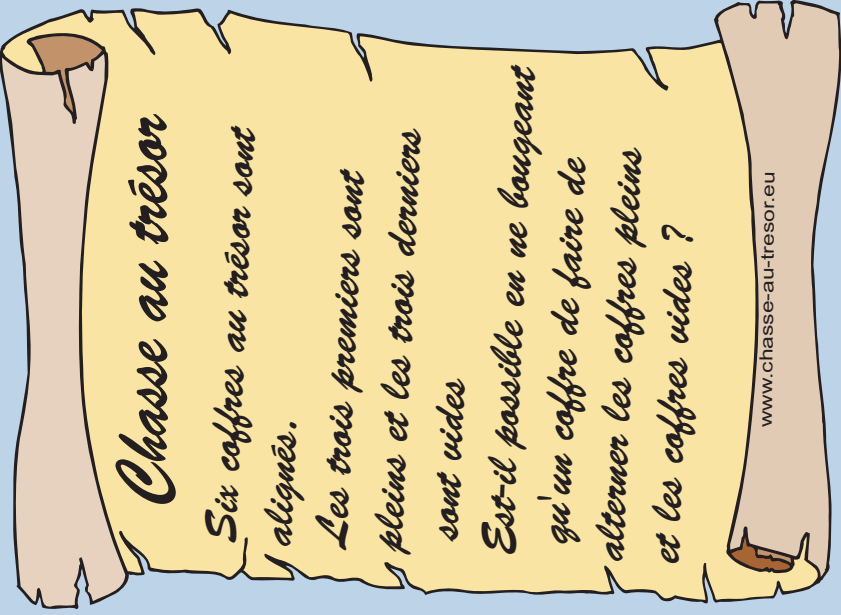 Chasse au trésor
Six coffres au trésor sont
alignés.
Les trois premiers sont
pleins et les trois derniers
sont vides
Est-il possible en ne bougeant
qu'un coffre de faire de
alterner les coffres pleins
et les coffres vides ?
www.chasse-au-tresor.eu